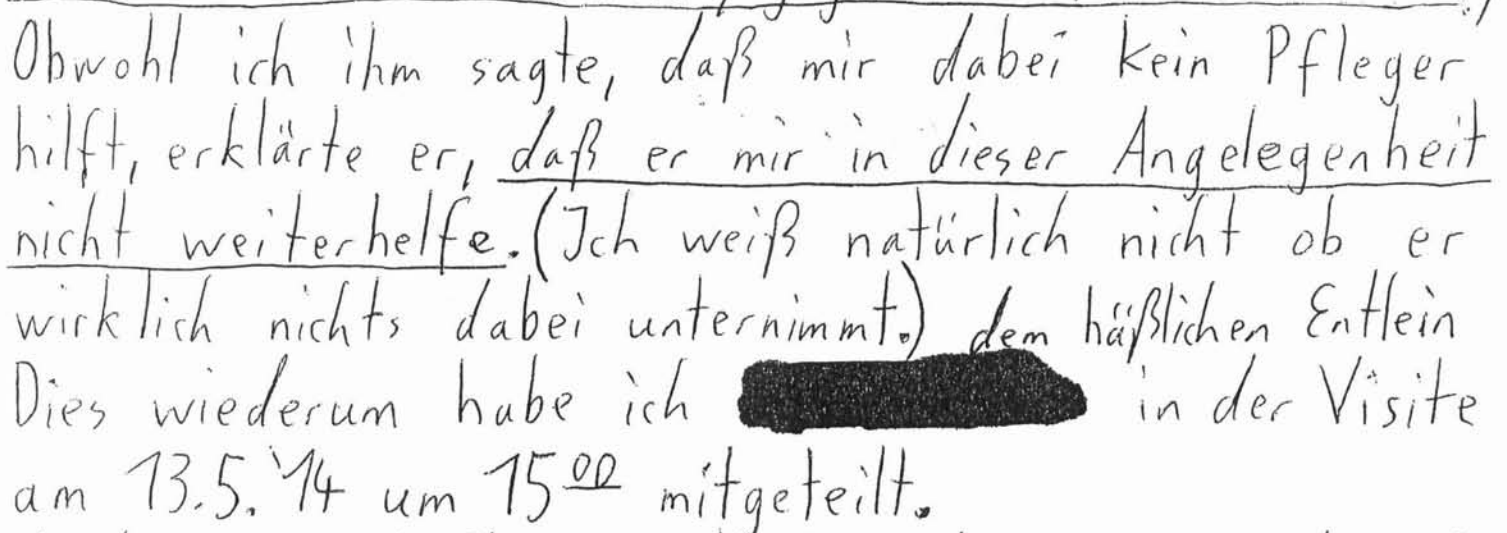 Obwohl ich ihm sagte, daß mir dabei kein Pfleger
hilft, erklärte er, daß er mir in dieser Angelegenheit
nicht weiterhelfe. (Ich weiß natürlich nicht ob er
wirklich nichts dabei unternimmt.) dem häßlichen Entlein
Dies wiederum habe ich in der Visite
am 13.5.'14 um 15⁰⁰ mitgeteilt.